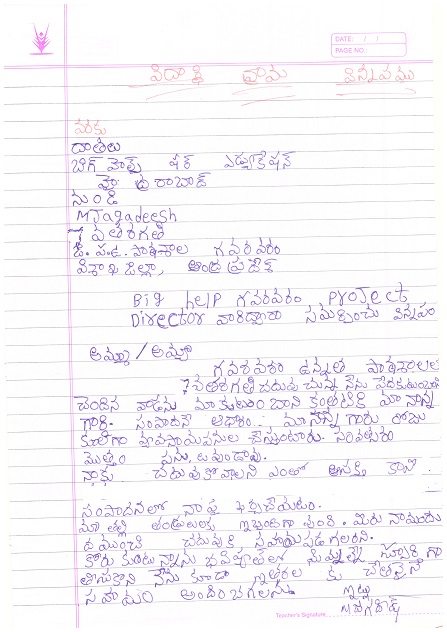 DATE: / /
PAGE NO.:
విద్యార్థి వ్రాయు విన్నపము
వరకు
దాతలు
బిగ్ హెల్ప్ ఫర్ ఎడ్యుకేషన్
హైద్రాబాద్
నుండి
M Jagadeesh
7 వ తరగతి
జి. ప. ఉ. పాఠశాల గవరవరం
విశాఖ జిల్లా, ఆంధ్రప్రదేశ్
Big help గవరవరం project
Director వారిద్వారా సమర్పించు విన్నపం
అయ్యా / అమ్మా
గవరవరం ఉన్నత పాఠశాలలో
7వ తరగతి చదువు చున్న నేను పేదకుటుంబానికి
చెందిన వాడను మా కుటుంబాని కంతటికి మా నాన్న
గారి సంపాదనే ఆధారం. మా నాన్న గారు రోజు
కూలీగా వ్యవసాయపనులు చేస్తుంటారు.
మొత్తం
నాకు చదువుకోవాలని ఎంతో ఆసక్తి కాని
సంపాదనలో నాపై ఖర్చుచేయటం
మా తల్లి తండ్రులకు ఇబ్బందిగా వుంది. మీరు నాయందు
దయుంచి చదువుకి సహాయపడగలరని
కోరు కుంటున్నాను భవిష్యత్ లో మిమ్మల్ని స్ఫూర్తి గా
తీసుకొని నేను కూడా ఇతరుల కు చేతనైన
సహాయం అందించగలను.
ఇట్లు
Teacher's Signature